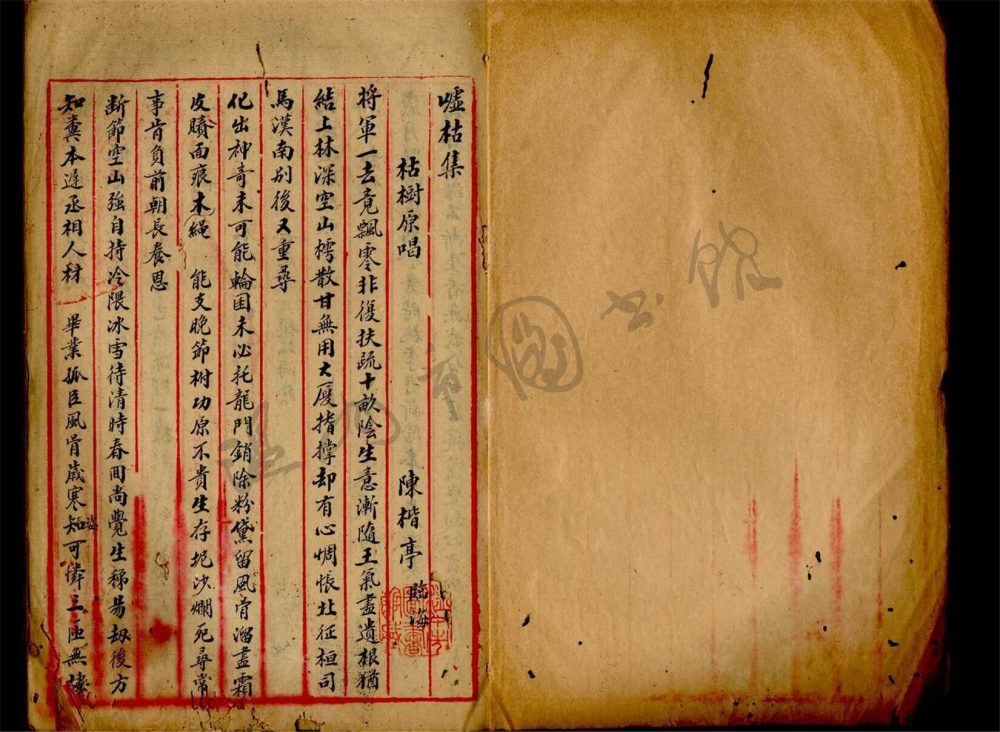 嘘枯集
枯樹原唱 陳楷亭 臨海
将軍一去竟飄零非復扶疏十畝陰生意漸隨王氣盡遺根猶
結上林深空山樗散甘無用大厦撐却有心惆悵北征桓司
馬漢南别後又重尋
化出神奇未可能輪囷未必托龍門銷除粉黛留風骨溜盡霜
皮賸面痕木繩 能支晚節樹功原不貴生存圯沙爛死尋常
事肯負前朝長養恩
断節空山強自持冷隈冰雪待清時春囬尚覺生稊易劫後方
知本遲丞相人材 畢業孤臣風骨歲寒知可憐三匝無棲
圖書館